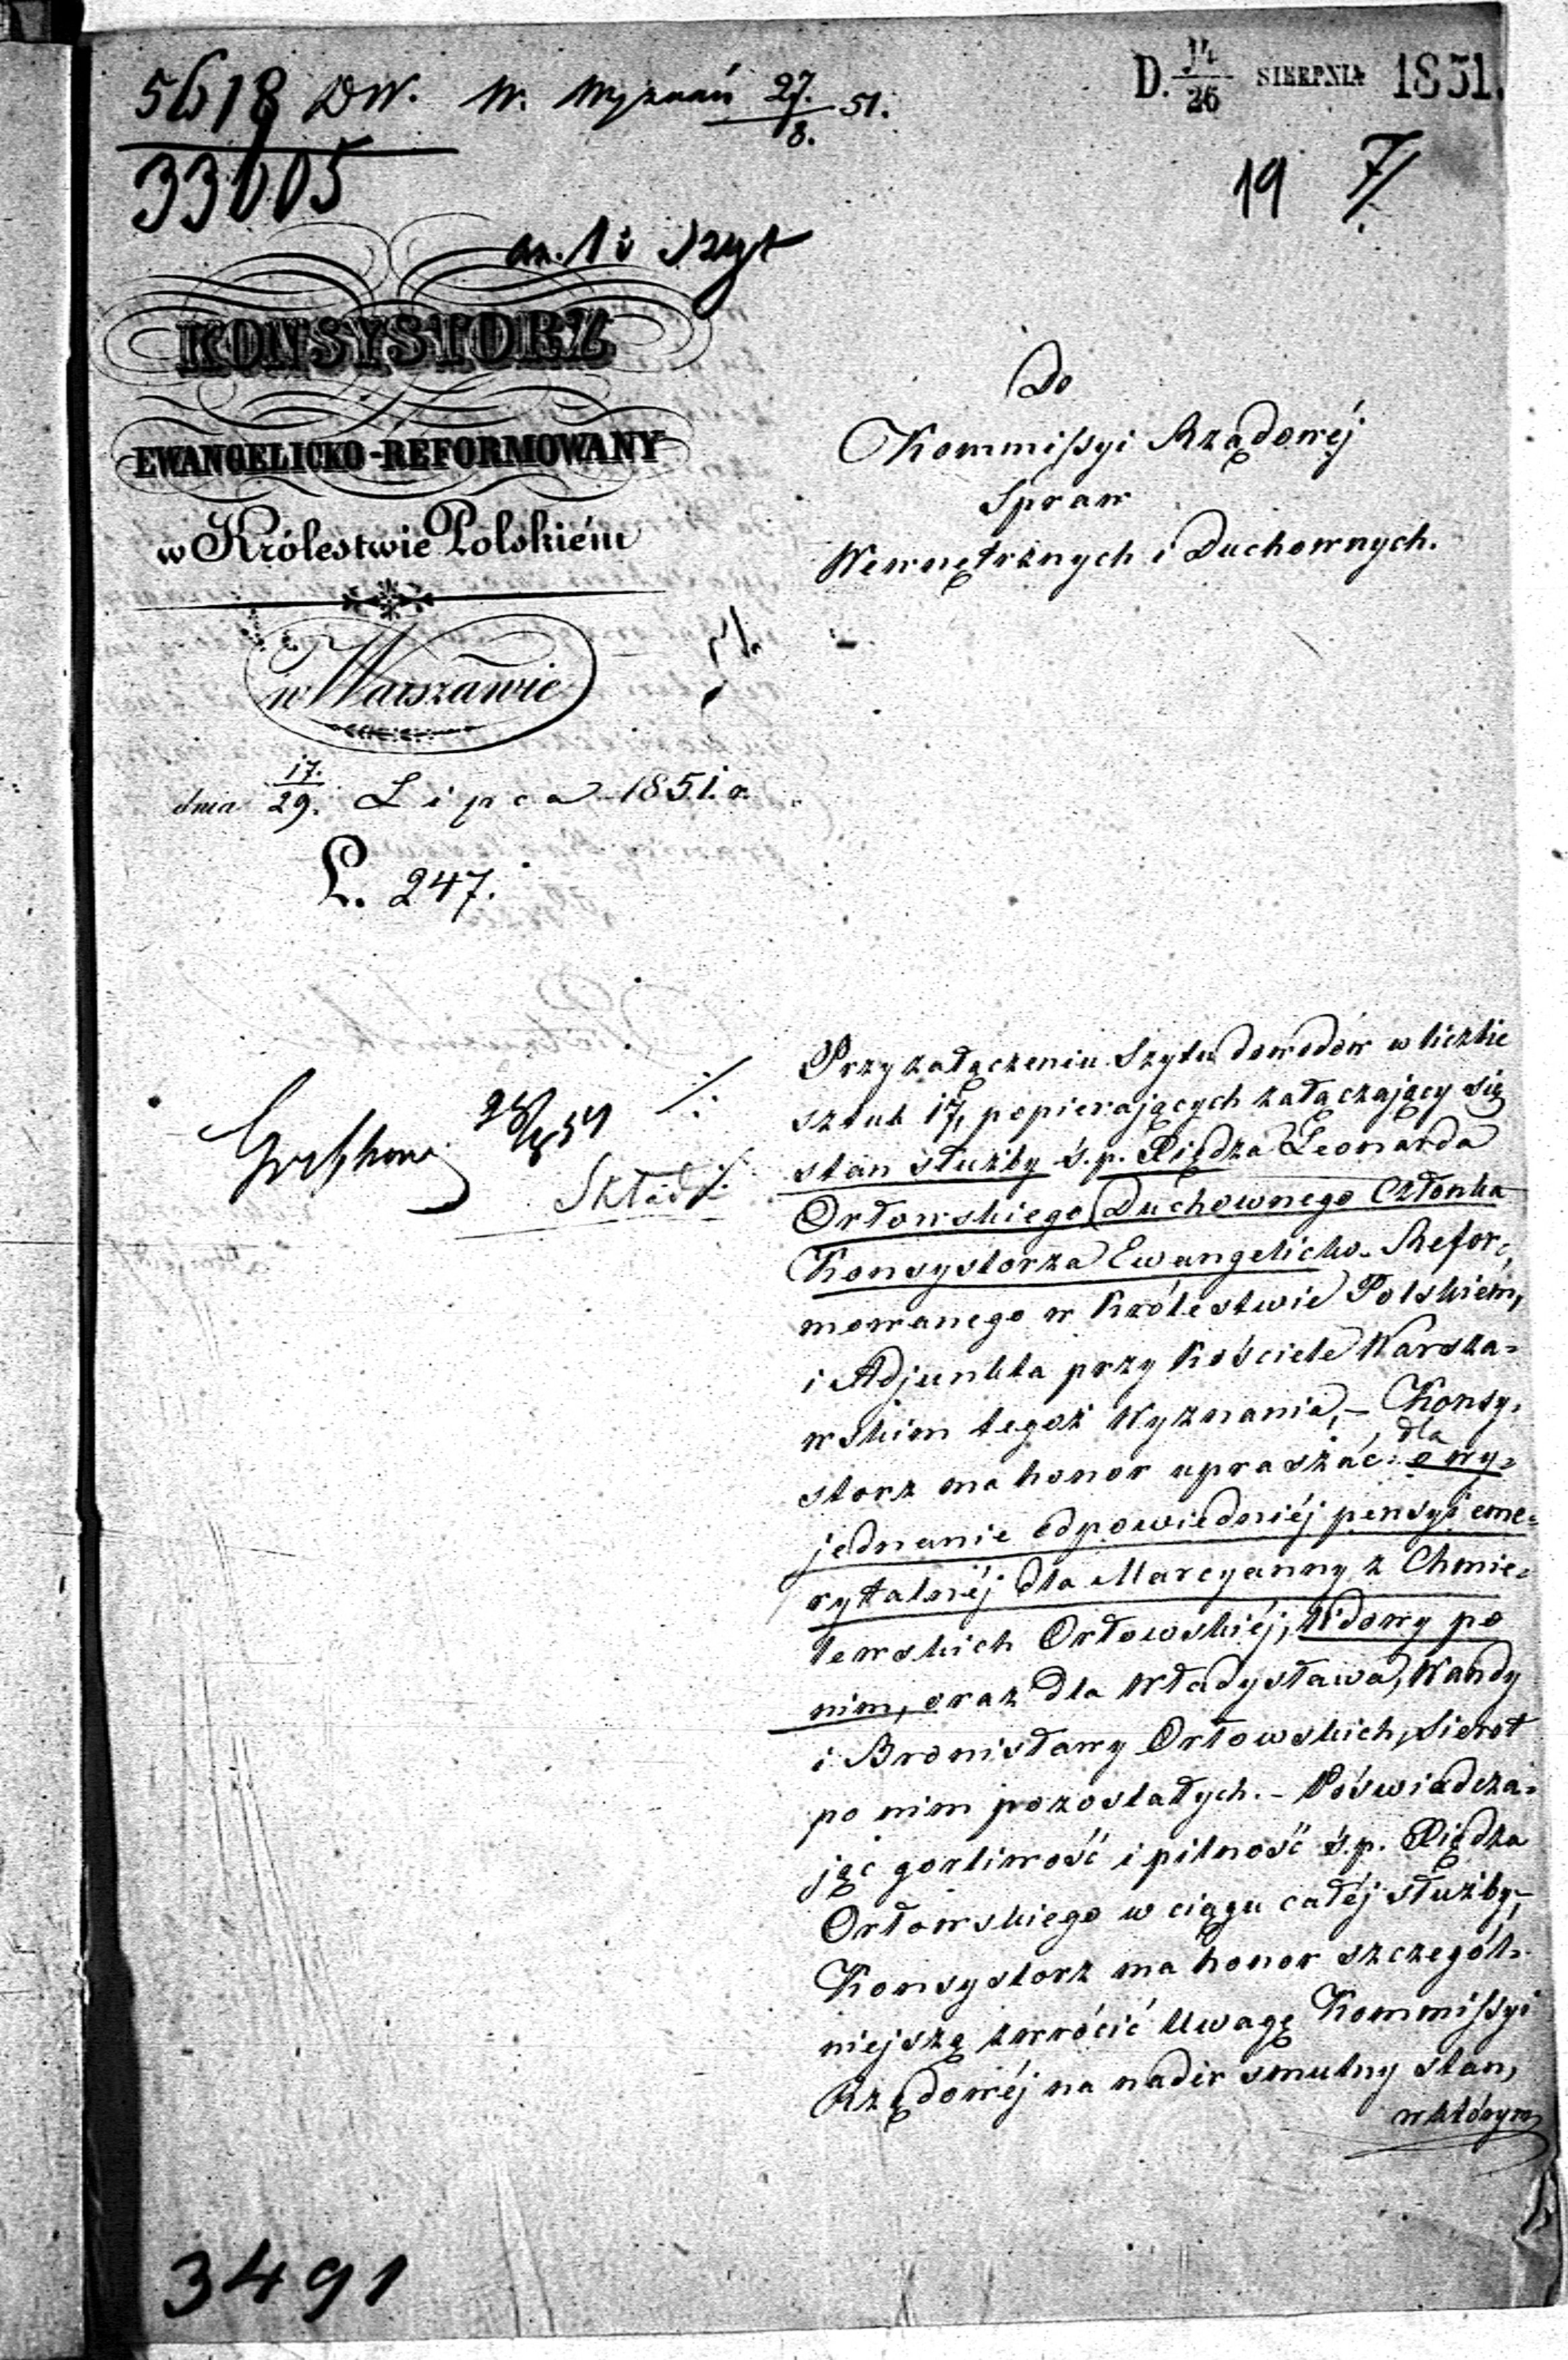 5618 DW. W. Wyznań 27/8. 51.
33605
D. 14/26 SIERPNIA 1851.
19 7/
an. 1 i Szyt
KONSYSTORZ
EWANGELICKO-REFORMOWANY
w Królestwie Polskiém
w Warszawie
dnia 17./29. Lipca 1851. r.
L. 247.
Do
Kommissyi Rządowéj
Spraw
Wewnętrznych i Duchownych.
Przy załączeniu Szytu dowodów w liczbie
sztuk 17, popierających załączający się
stan służby ś. p. Xiędza Leonarda
Orłowskiego Duchownego Członka
Konsystorza Ewangelicko-Refor-
mowanego w Królestwie Polskiem,
i Adjunkta przy Kościele Warsza=
wskim tegoż Wyznania, – Konsy-
storz ma honor upraszać o wy=
dla
jednanie odpowiedniéj pensyi eme=
rytalnéj dla Marcyanny z Chmie=
lewskich Orłowskiéj, Wdowy po
nim, oraz dla Władysława, Wandy
i Bronisławy Orłowskich, Sierot
po nim pozostałych. – Poświadcza=
jąc gorliwość i pilność ś. p. Xiędza
Orłowskiego w ciągu całéj służby, –
Konsystorz ma honor szczegól=
niejszą zwrócić Uwagę Kommissyi
Rządowéj na nader smutny stan,
w którym
28/8 51
Skład
3491